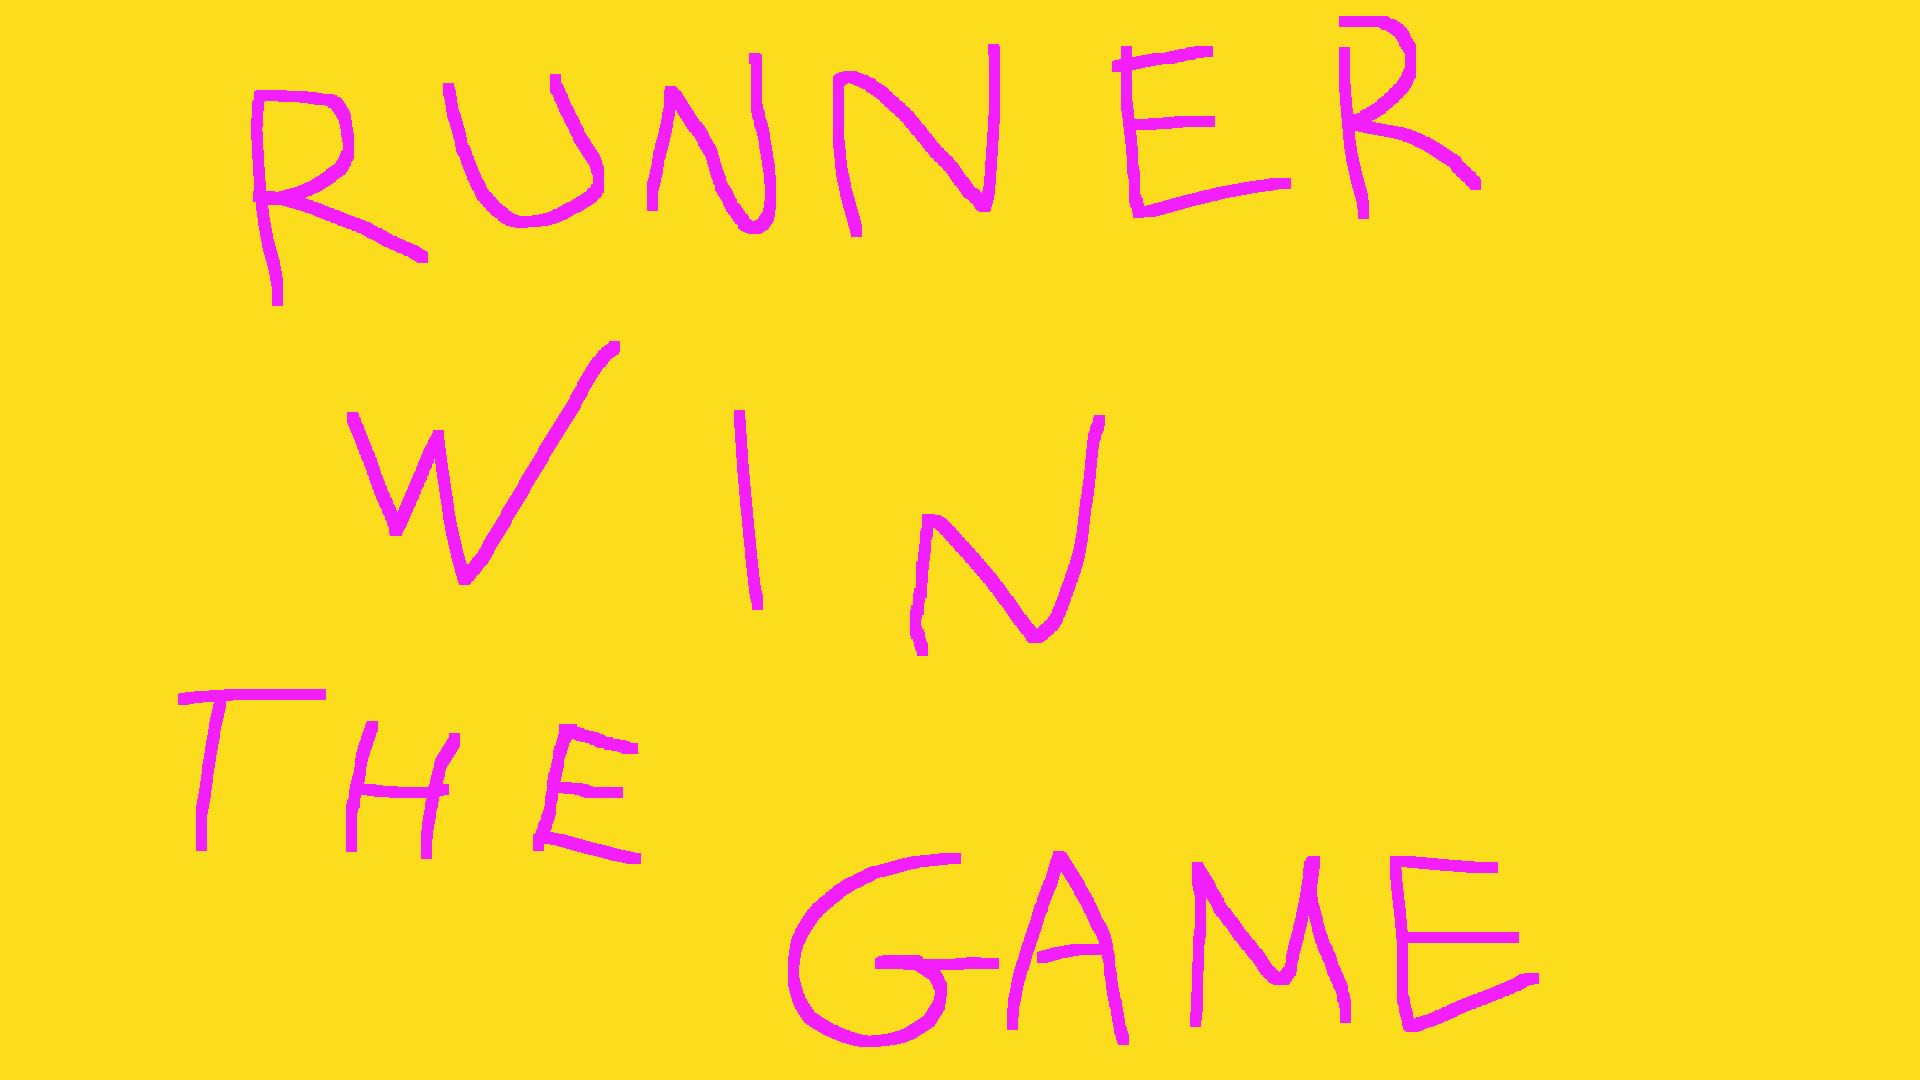 RUNNER
WIN
THE
GAME